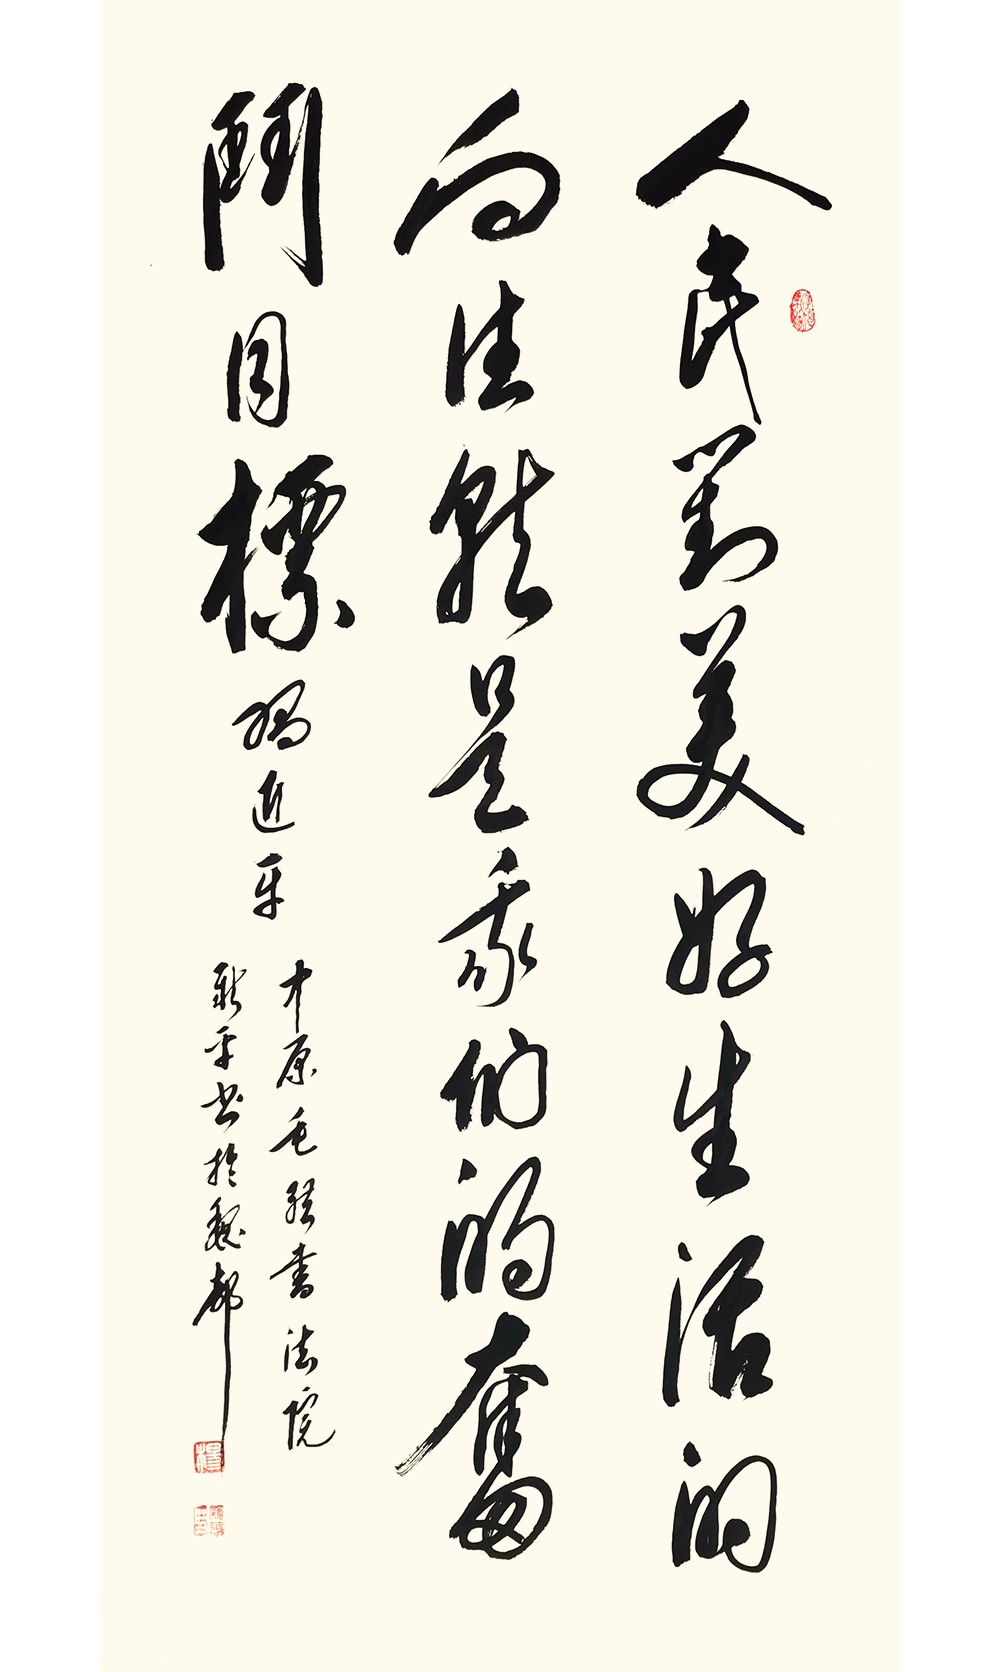 人民對美好生活的
向往就是我們的奮
鬥目標 習近平
中原毛體書法院
新平书於魏都